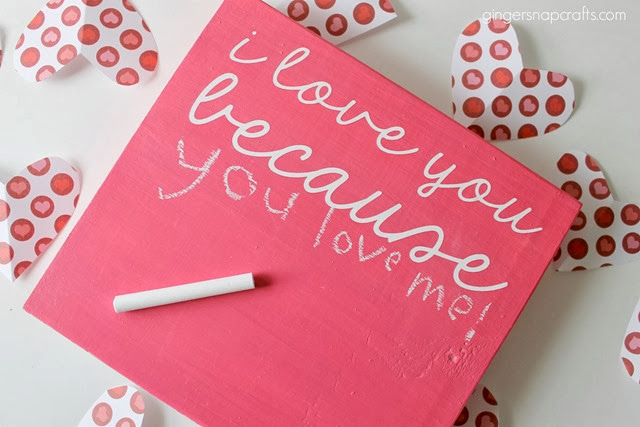 gingersnapcrafts.com
i love you
because
you love me!